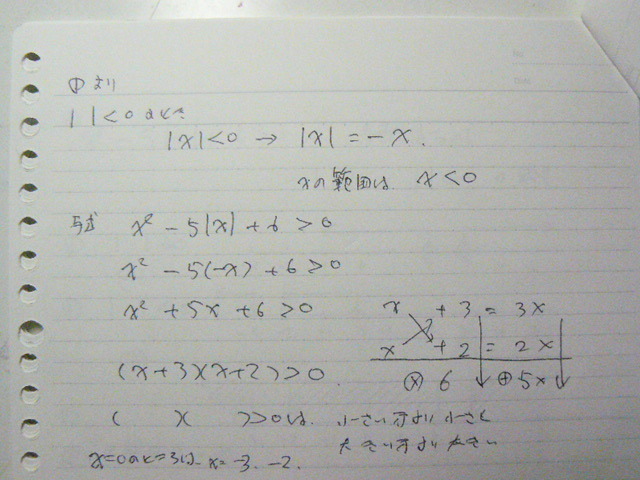 ①より
| | < 0 のとき
|x| < 0 → |x| = -x.
xの範囲は x < 0
与式 x² - 5|x| + 6 > 0
x² - 5(-x) + 6 > 0
x² + 5x + 6 > 0
x + 3 = 3x
x + 2 = 2x
⊗ 6 ⊕ 5x
(x+3)(x+2) > 0.
( )( ) > 0は、小さい方より小さく
大きい方より大きい
x=0のときは x = -3, -2.